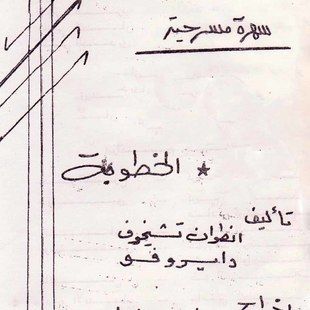 سهرة مسرحية
الخطوبة
تأليف
انطوان تشيخوف
دايروفو